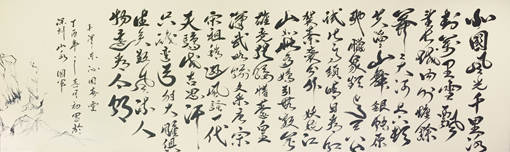 北国風光千里冰
封万里雪飘
望長城内外惟餘
莽莽大河上下頓
失滔滔山舞銀蛇原
馳蠟象欲与天公
試比高須晴日看紅
装素裹分外妖娆江
山如此多嬌引無数英
雄競折腰惜秦皇
漢武略输文采唐宗
宋祖稍逊風騷一代
天驕成吉思汗
只識彎弓射大雕俱
往矣数風流人
物還看今朝
毛澤東沁園春雪
丁酉年初寫於
深圳